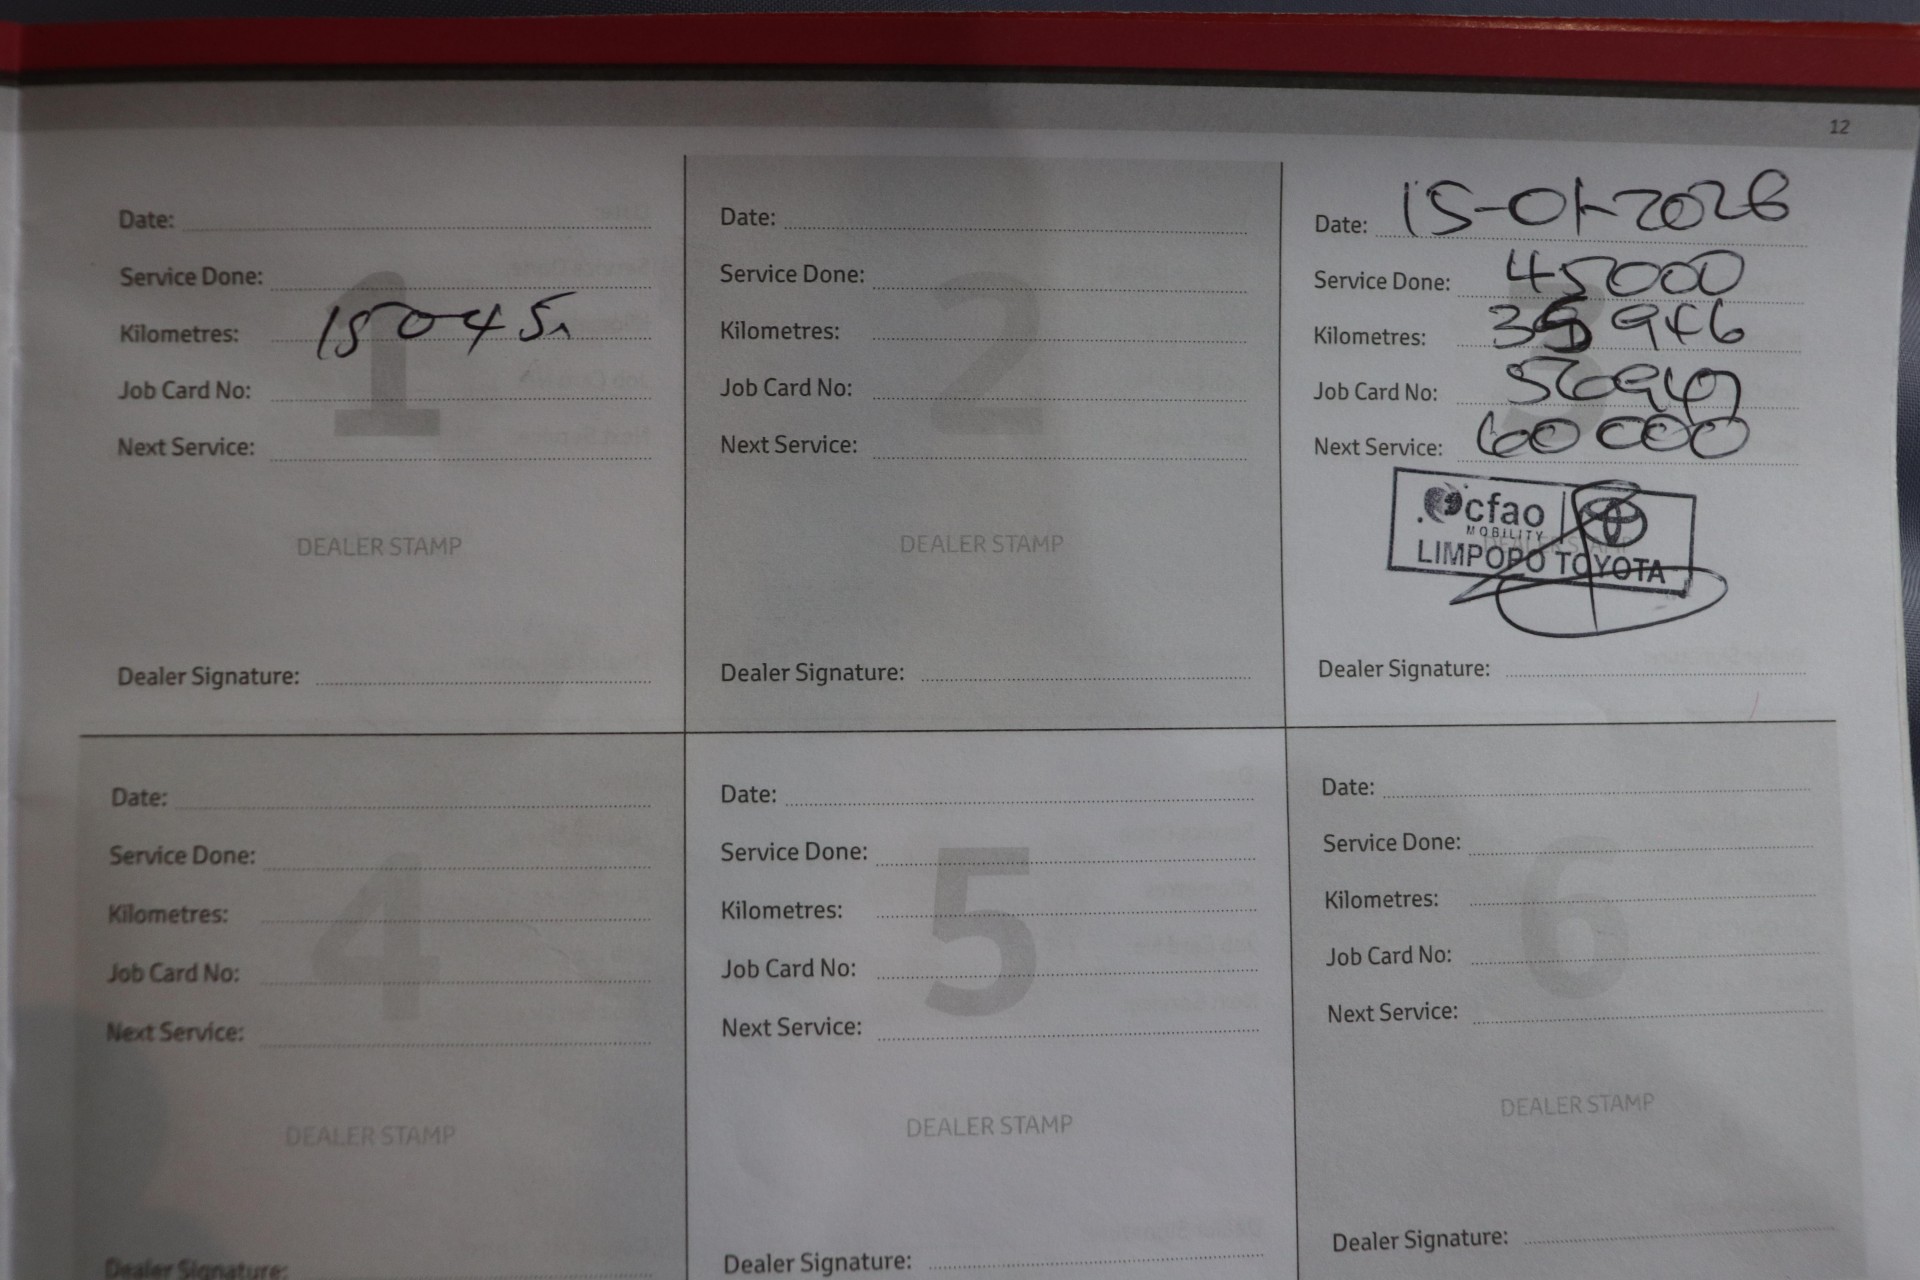 12
Date:
Service Done:
Kilometres: 15045
Job Card No:
Next Service:
1
DEALER STAMP
Dealer Signature:
Date:
Service Done:
Kilometres:
Job Card No:
Next Service:
2
DEALER STAMP
Dealer Signature:
Date: 15-01-2026
Service Done: 45000
Kilometres:
Job Card No:
Next Service: 60 000
3
cfao
MOBILITY
DEALER STAMP
LIMPOPO TOYOTA
Dealer Signature:
Date:
Service Done:
Kilometres:
Job Card No:
Next Service:
4
DEALER STAMP
Dealer Signature:
Date:
Service Done:
Kilometres:
Job Card No:
Next Service:
5
DEALER STAMP
Dealer Signature:
Date:
Service Done:
Kilometres:
Job Card No:
Next Service:
6
DEALER STAMP
Dealer Signature: